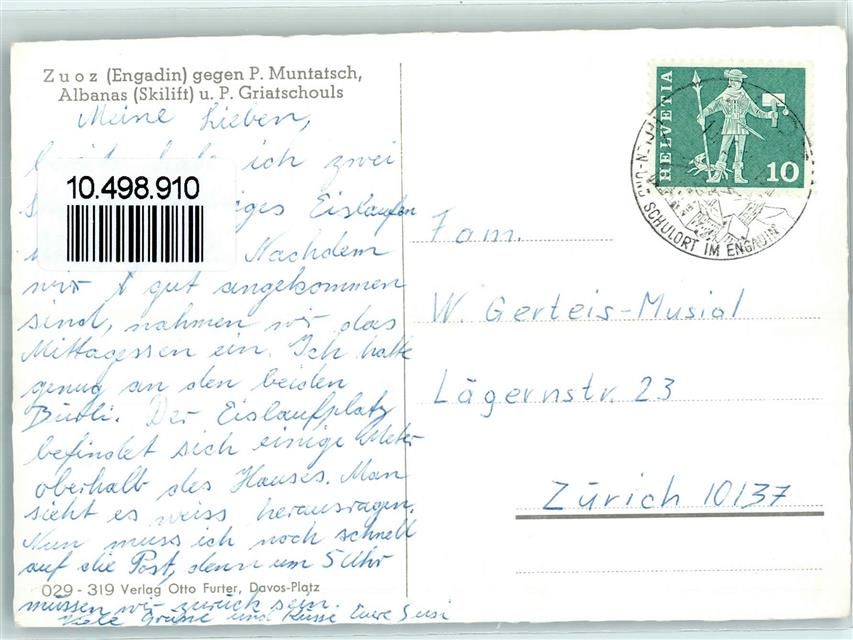 Zuoz (Engadin) gegen P. Muntatsch,
Albanas (Skilift) u. P. Griatschouls
Meine Lieben,
ich zwei
10.498.910
iges Eislaufen
Nachdem
wir gut angekommen
sind, nahmen wir das
Mittagessen ein. Ich hatte
genug an den beiden
Bürli. Der Eislaufplatz
befindet sich einige Meter
oberhalb des Hauses. Man
sieht es weiss herausragen.
Nun muss ich noch schnell
auf die Post, denn um 5 Uhr
029 - 319 Verlag Otto Furter, Davos-Platz
müssen wir zurück sein.
Viele Grüsse und Küsse Eure Susi
HELVETIA
10
SCHULORT IM ENGADIN
Fam.
W. Gerteis-Musial
Lägernstr. 23
Zürich 10/37